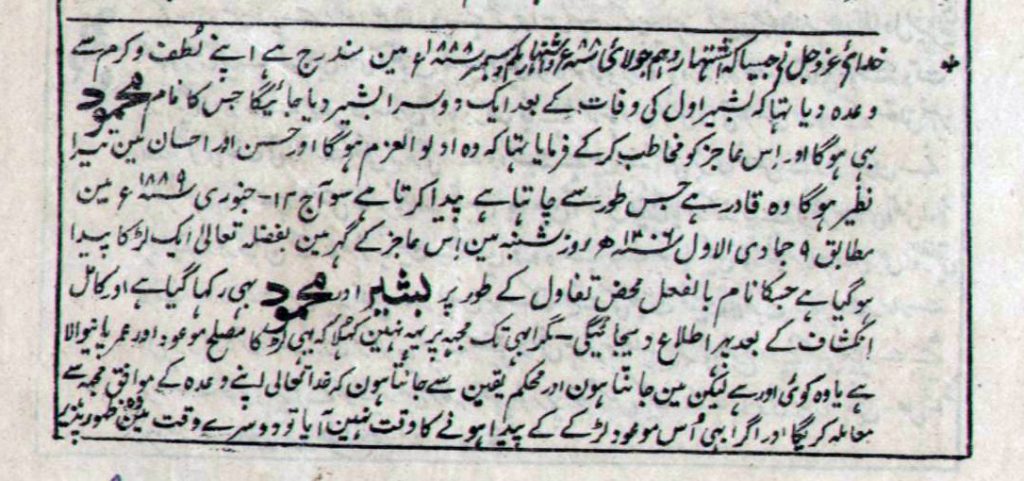 خدائے عزوجل نے جیسا کہ اشتہار دہم جولائی ۱۸۸۸ء و اشتہار یکم دسمبر ۱۸۸۸ء مین مندرج ہے اپنے لُطف و کرم سے
وعدہ دیا تہا کہ بشیر اول کی وفات کے بعد ایک دوسرا بشیر دیا جائیگا جس کا نام محمود
بہی ہوگا اور اِس عاجز کو مخاطب کر کے فرمایا تہا کہ وہ اولوالعزم ہوگا اور حسن اور احسان مین تیرا
نظیر ہوگا وہ قادر ہے جس طور سے چاہتا ہے پیدا کرتا ہے سو آج ۱۲- جنوری ۱۸۸۹ء مین
مطابق ۹ جمادی الاول ۱۳۰۶ھ روز شنبہ مین اِس عاجز کے گہر مین بفضلہ تعالیٰ ایک لڑکا پیدا
ہوگیا ہے جسکا نام بالفعل محض تفاول کے طور پر بشیر اور محمود بہی رکہا گیا ہے اور کامل
انکشاف کے بعد پہر اطلاع دیجائیگی - مگر ابہی تک مجہہ پر یہہ نہین کہلا کہ یہی لڑکا مصلح موعود اور عمر پانیوالا
ہے یا وہ کوئی اور ہے لیکن مین جانتا ہون اور محکم یقین سے جانتا ہون کہ خدا تعالیٰ اپنے وعدہ کے موافق مجہہ سے
معاملہ کریگا اور اگر ابہی اُس موعود لڑکے کے پیدا ہونے کا وقت نہین آیا تو دوسرے وقت مین وہ ظہور پذیر